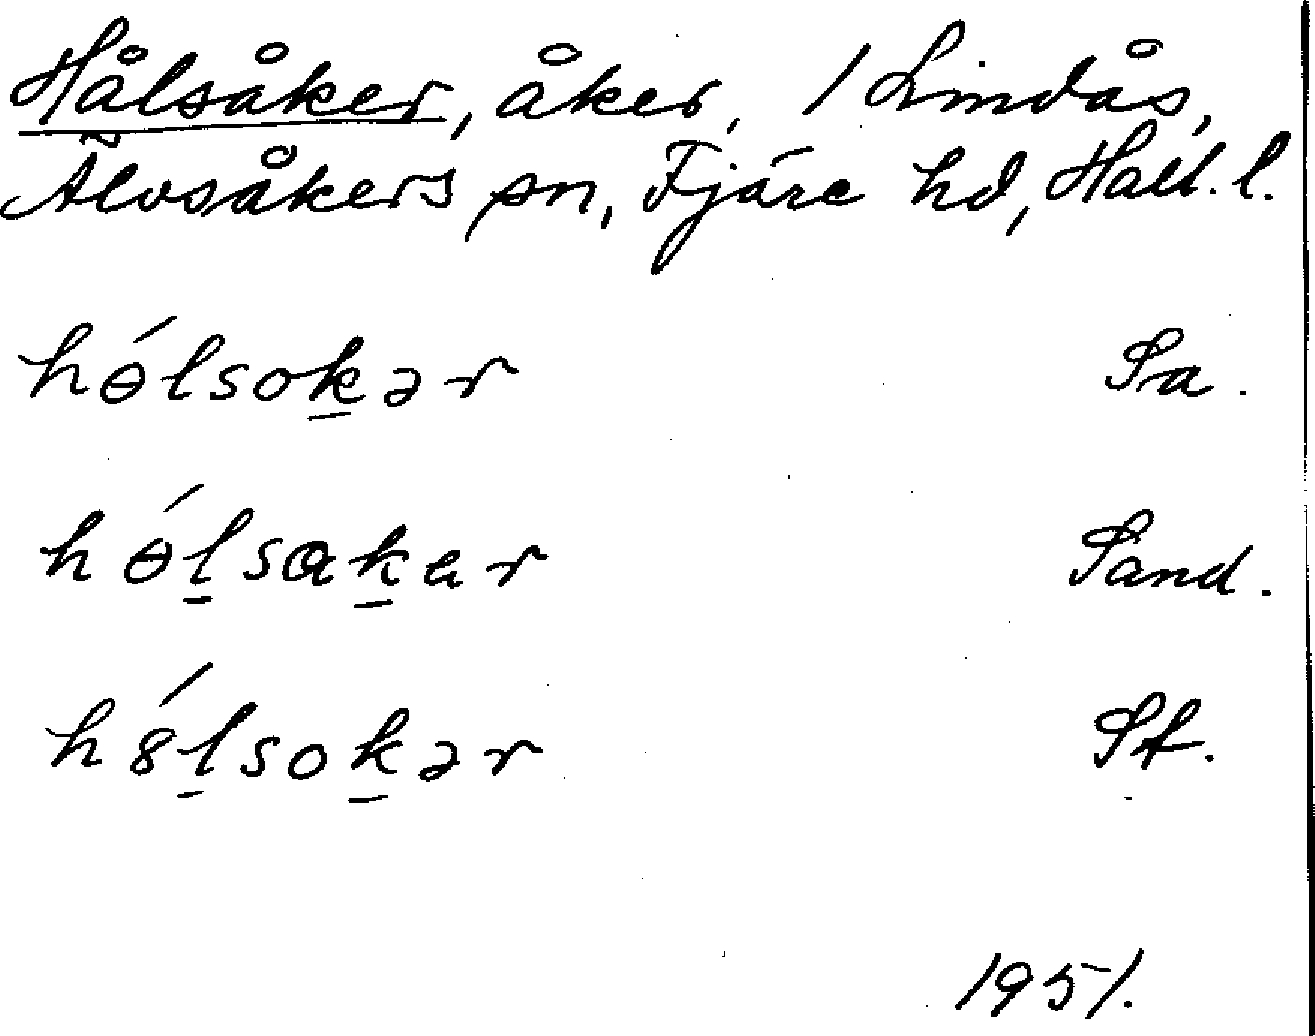 Hålsåker, åker, 1 Lindås,
Älvsåkers sn, Fjäre hd, Hall. l.
hɵ́lsoḵər Sa.
hɵ́ḻsaḵar Sand.
h8́ḻsoḵər St.
1951.